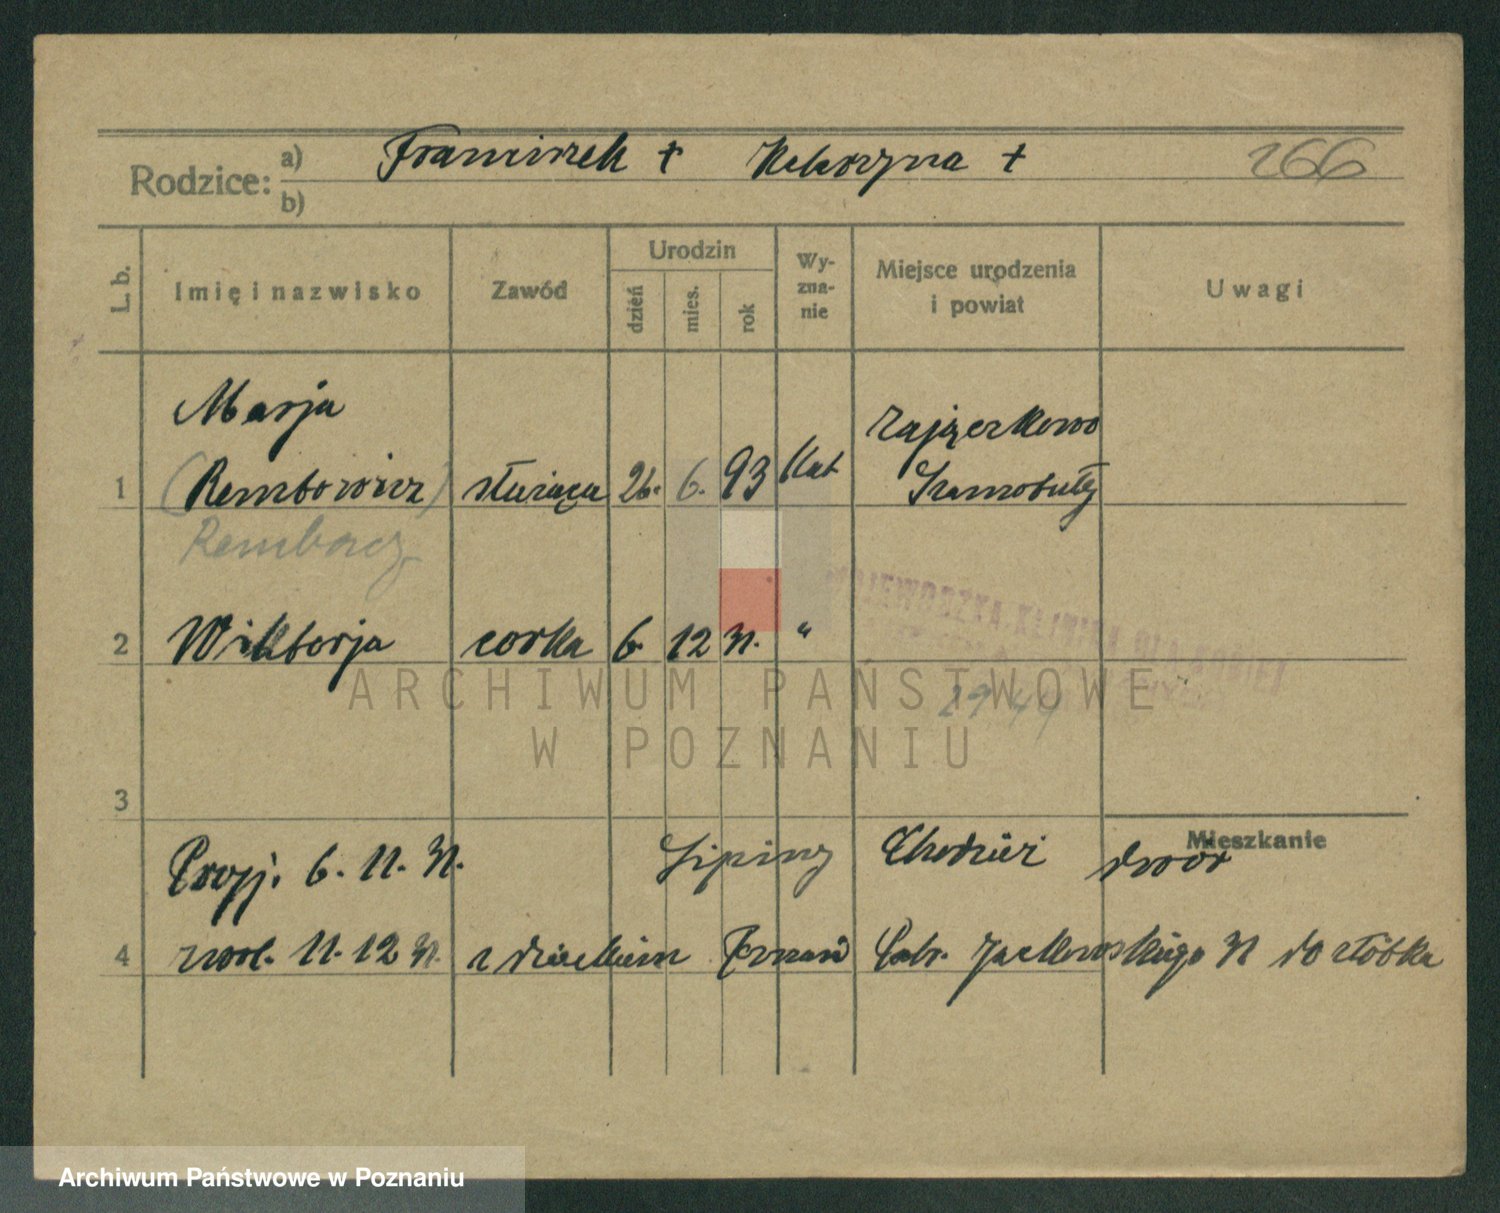 Rodzice: a) Franciszek + Katarzyna + 266
b)
L. b. Imię i nazwisko Zawód Urodzin dzień mies. rok Wyznanie Miejsce urodzenia i powiat Uwagi
Marja Zajączkowo
1 (Rembowicz) służąca 26. 6. 93 Kat Szamotuły
Rembacz
WOJEWÓDZKA KLINIKA DLA KOBIET
2 Wiktorja corka 6. 12 31. "
ARCHIWUM PAŃSTWOWE
29 44
W POZNANIU
3
Mieszkanie
Przyj. 6. 11. 31. Lipiny Chodzież dwór
4 zwol. 11. 12 31. z dzieckiem Poznań Gabr. Jackowskiego 31 do żłóbka
Archiwum Państwowe w Poznaniu